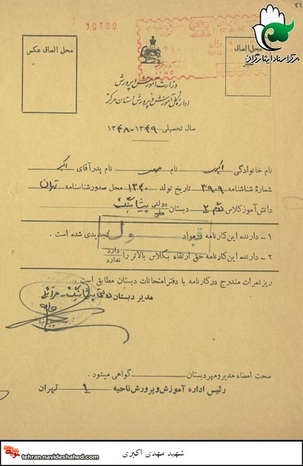 ۲۱
30780
IRAN
مرکز اسناد ایثارگران
محل الصاق عکس
محل الصاق عکس
وزارت آموزش و پرورش
اداره کل آموزش و پرورش استان مرکز
سال تحصیلی ۱۳۴۹-۱۳۴۸
نام خانوادگی اکبری نام مهدی نام پدر آقای
شمارهٔ شناسنامه ۳۹۰۹ تاریخ تولد ۱۳۴۰ محل صدور شناسنامه تهران
دانش‌آموز کلاس دبستان دولتی
۱ - دارنده این کارنامه قبول تجدیدی شده است .
۲ - دارنده این کارنامه حق ارتقاء بکلاس بالاتر را دارد ندارد
ریز نمرات مندرج در کارنامه با دفتر امتحانات دبستان مطابق است .
مدیر دبستان
صحت امضاء مدیر و مهر دبستان گواهی میشود .
رئیس اداره آموزش و پرورش ناحیه ۱ تهران
شهید مهدی اکبری
tehran.navideshahed.com